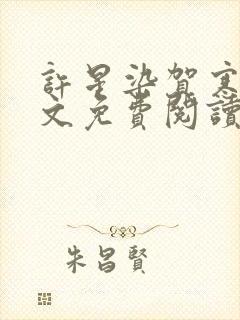 許星染賀
文免費閱讀
朱昌賢